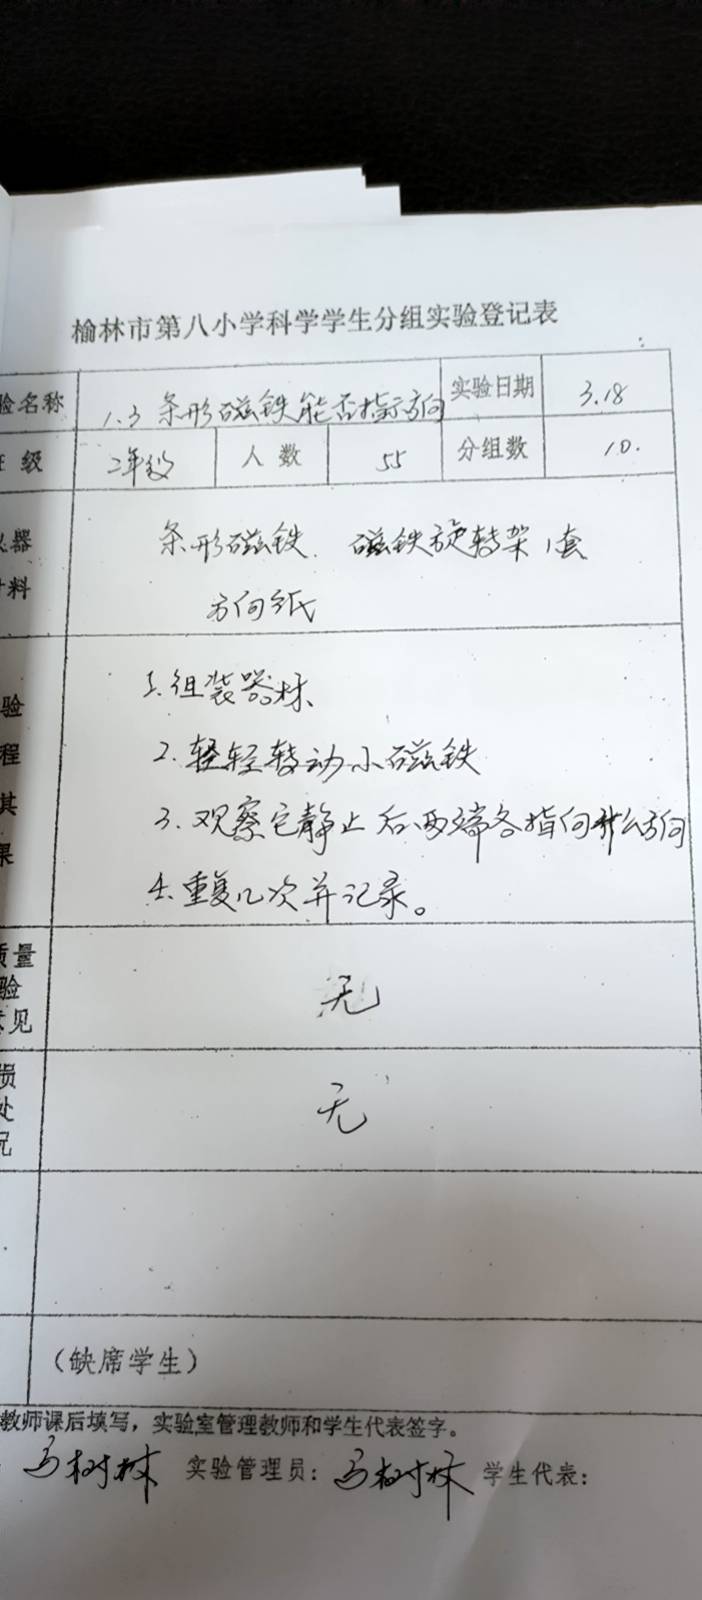 榆林市第八小学科学学生分组实验登记表
验名称 1.3 条形磁铁能否指示方向 实验日期 3.18
级 2年级 人数 55 分组数 10.
器 条形磁铁 磁铁旋转架1套
料 方向纸
1.组装器材
验
程 2.轻轻转动小磁铁
其 3.观察它静止后两端各指向什么方向
果 4.重复几次并记录。
质量
验 无
意见
损
处 无
况
(缺席学生)
教师课后填写，实验室管理教师和学生代表签字。
马树林 实验管理员：马树林 学生代表：